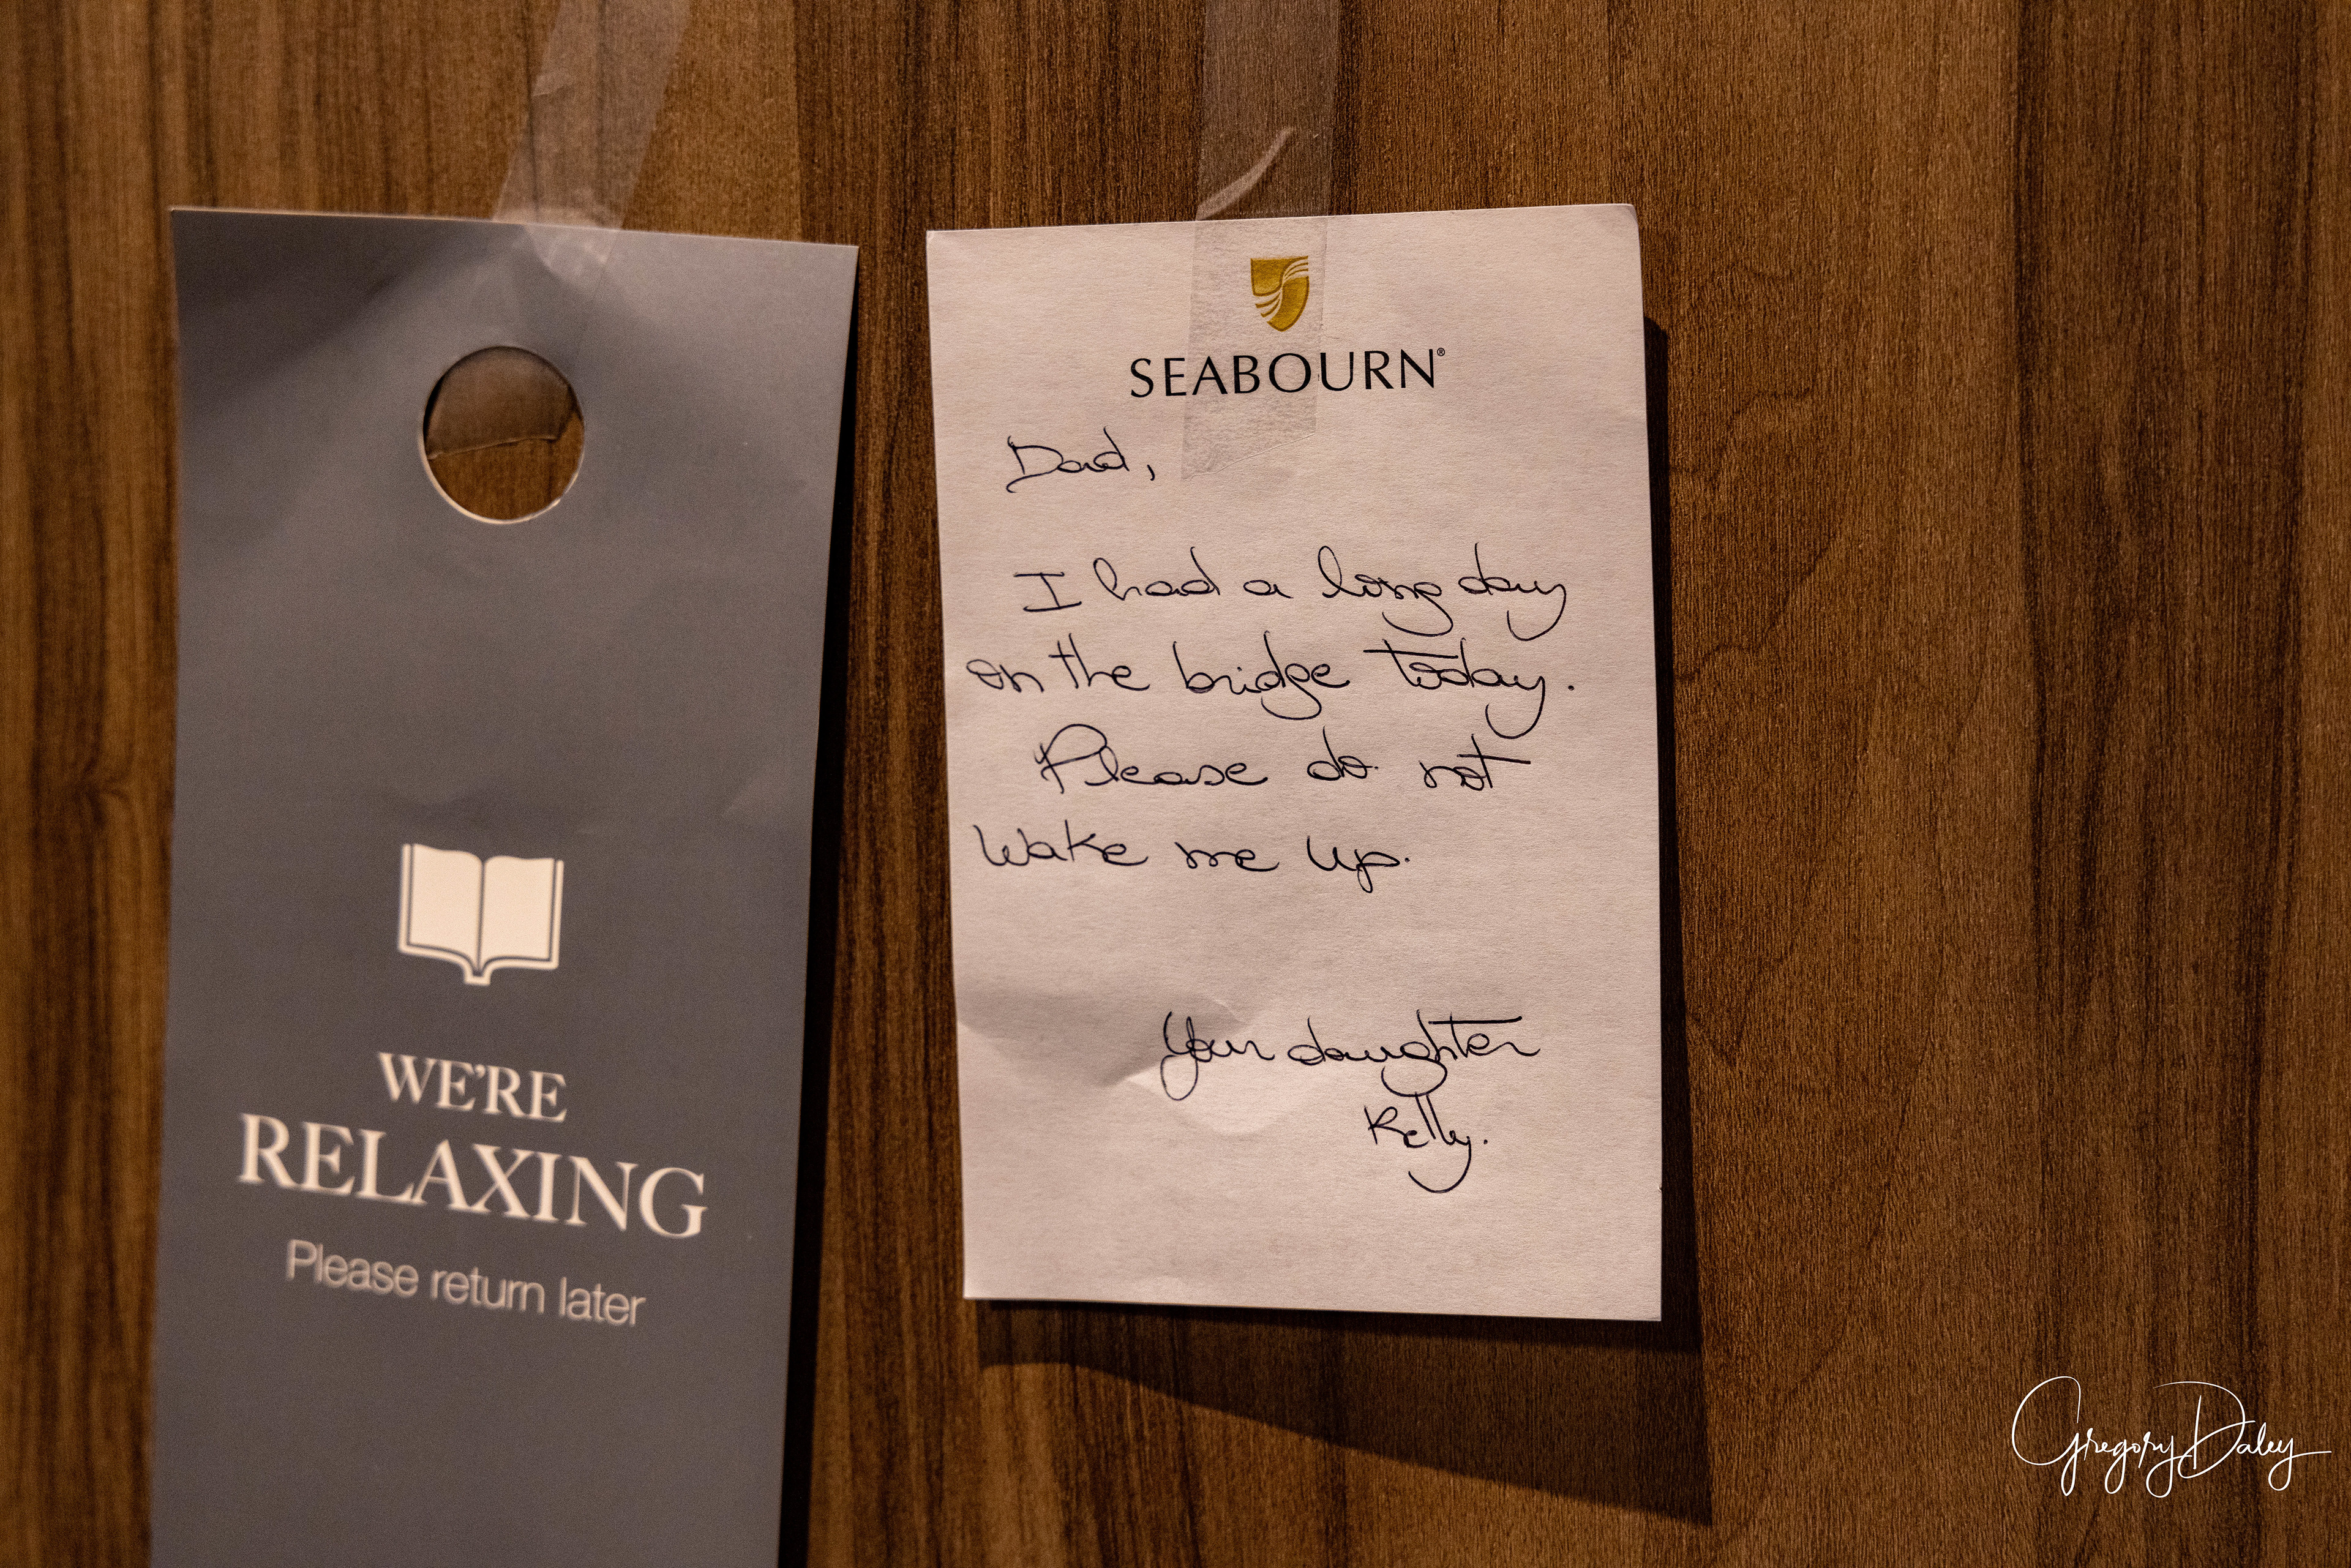 WE'RE
RELAXING
Please return later
SEABOURN®
Dad,
I had a long day
on the bridge today.
Please do not
wake me up.
Your daughter
Kelly.
Gregory Daley